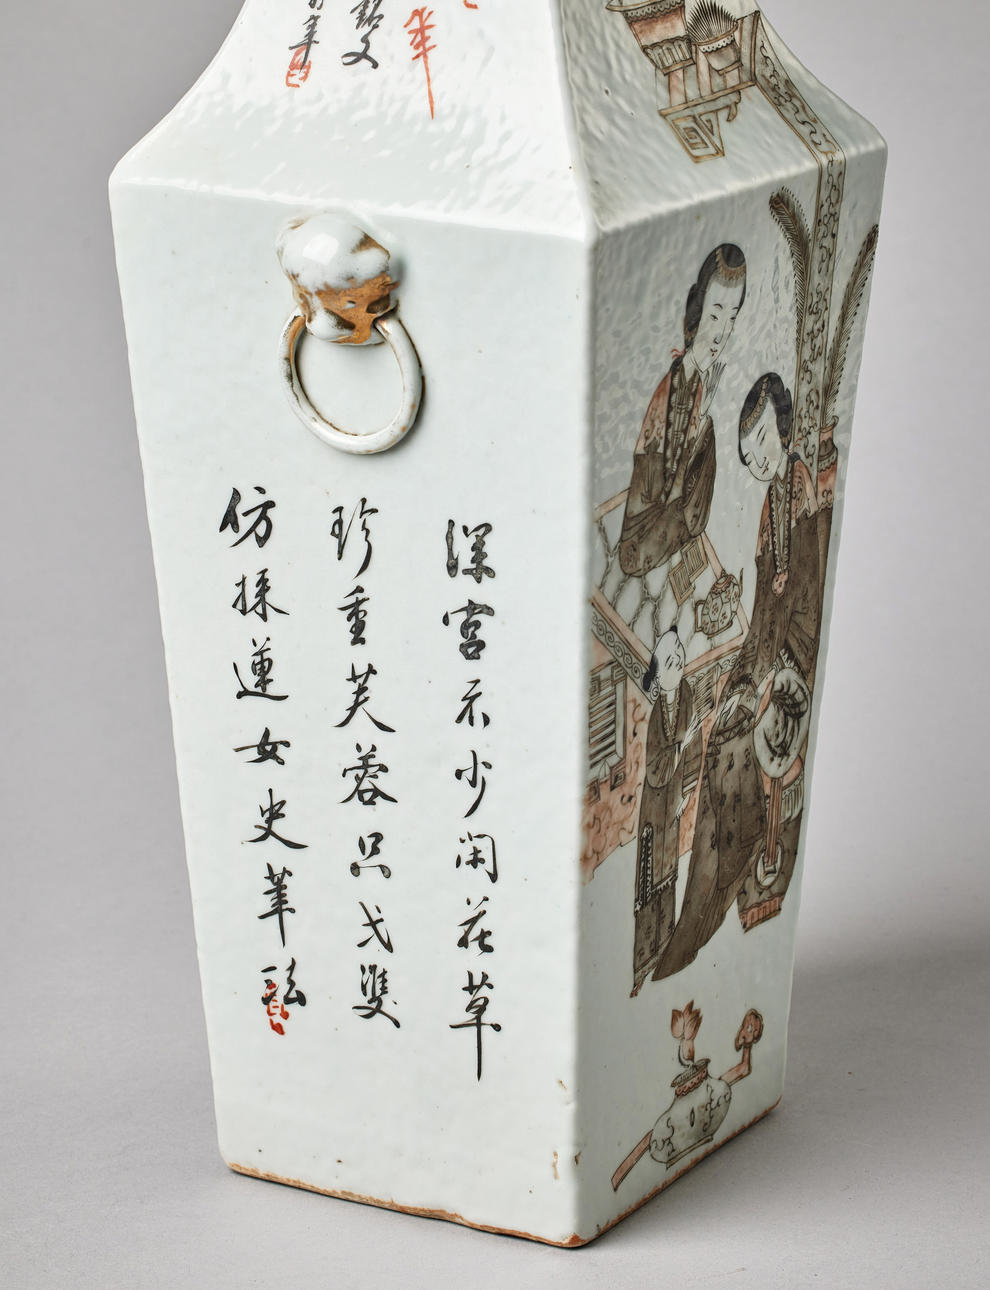 深宮不少閑花草
珍重芙蓉只弌雙
仿採蓮女史筆
銘文
年